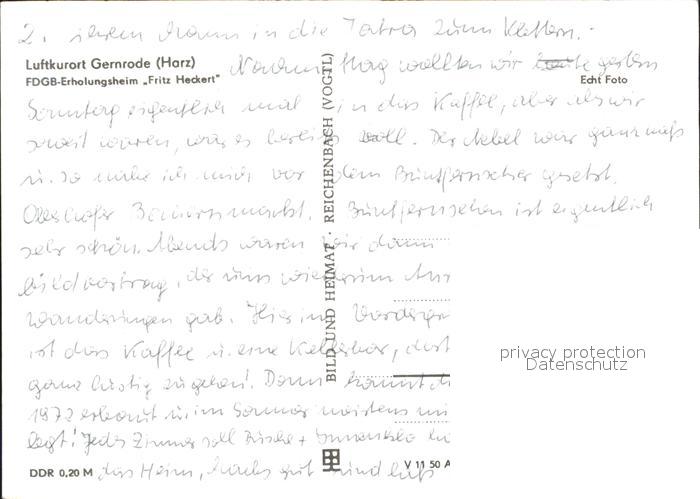 2. ihrem Mann in die Tatra zum Klettern.
Luftkurort Gernrode (Harz)
FDGB-Erholungsheim „Fritz Heckert"
Echt Foto
Nachmittag wollten wir heute gestern
Sonntag eigentlich mal in das Kaffee, aber als wir
soweit waren, war es bereits voll. Der Nebel war ganz naß
u. so habe ich mich vor dem Buntfernseher gesetzt.
Oberhofer Bauernmarkt. Buntfernsehen ist eigentlich
sehr schön. Abends waren wir dann
bildvortrag, der uns wiederum
wanderungen gab. Hier im
ist das Kaffee u. eine Kellerbar, dort
ganz lustig zugehen! Dann kommt
1972 erbaut u. im Sommer meistens
legt! Jedes Zimmer soll Dusche +
das Heim,
BILD UND HEIMAT · REICHENBACH (VOGTL)
DDR 0,20 M
V 11 50 A
privacy protection
Datenschutz